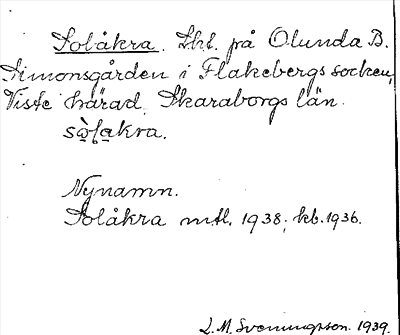 Solåkra. Lht. på Olunda B.
Simonsgården i Flakebergs socken,
Viste härad Skaraborgs län.
so̱̊fa̱kra.
Nynamn.
Solåkra mtl. 1938, kb. 1936.
L. M. Svenungsson. 1939.